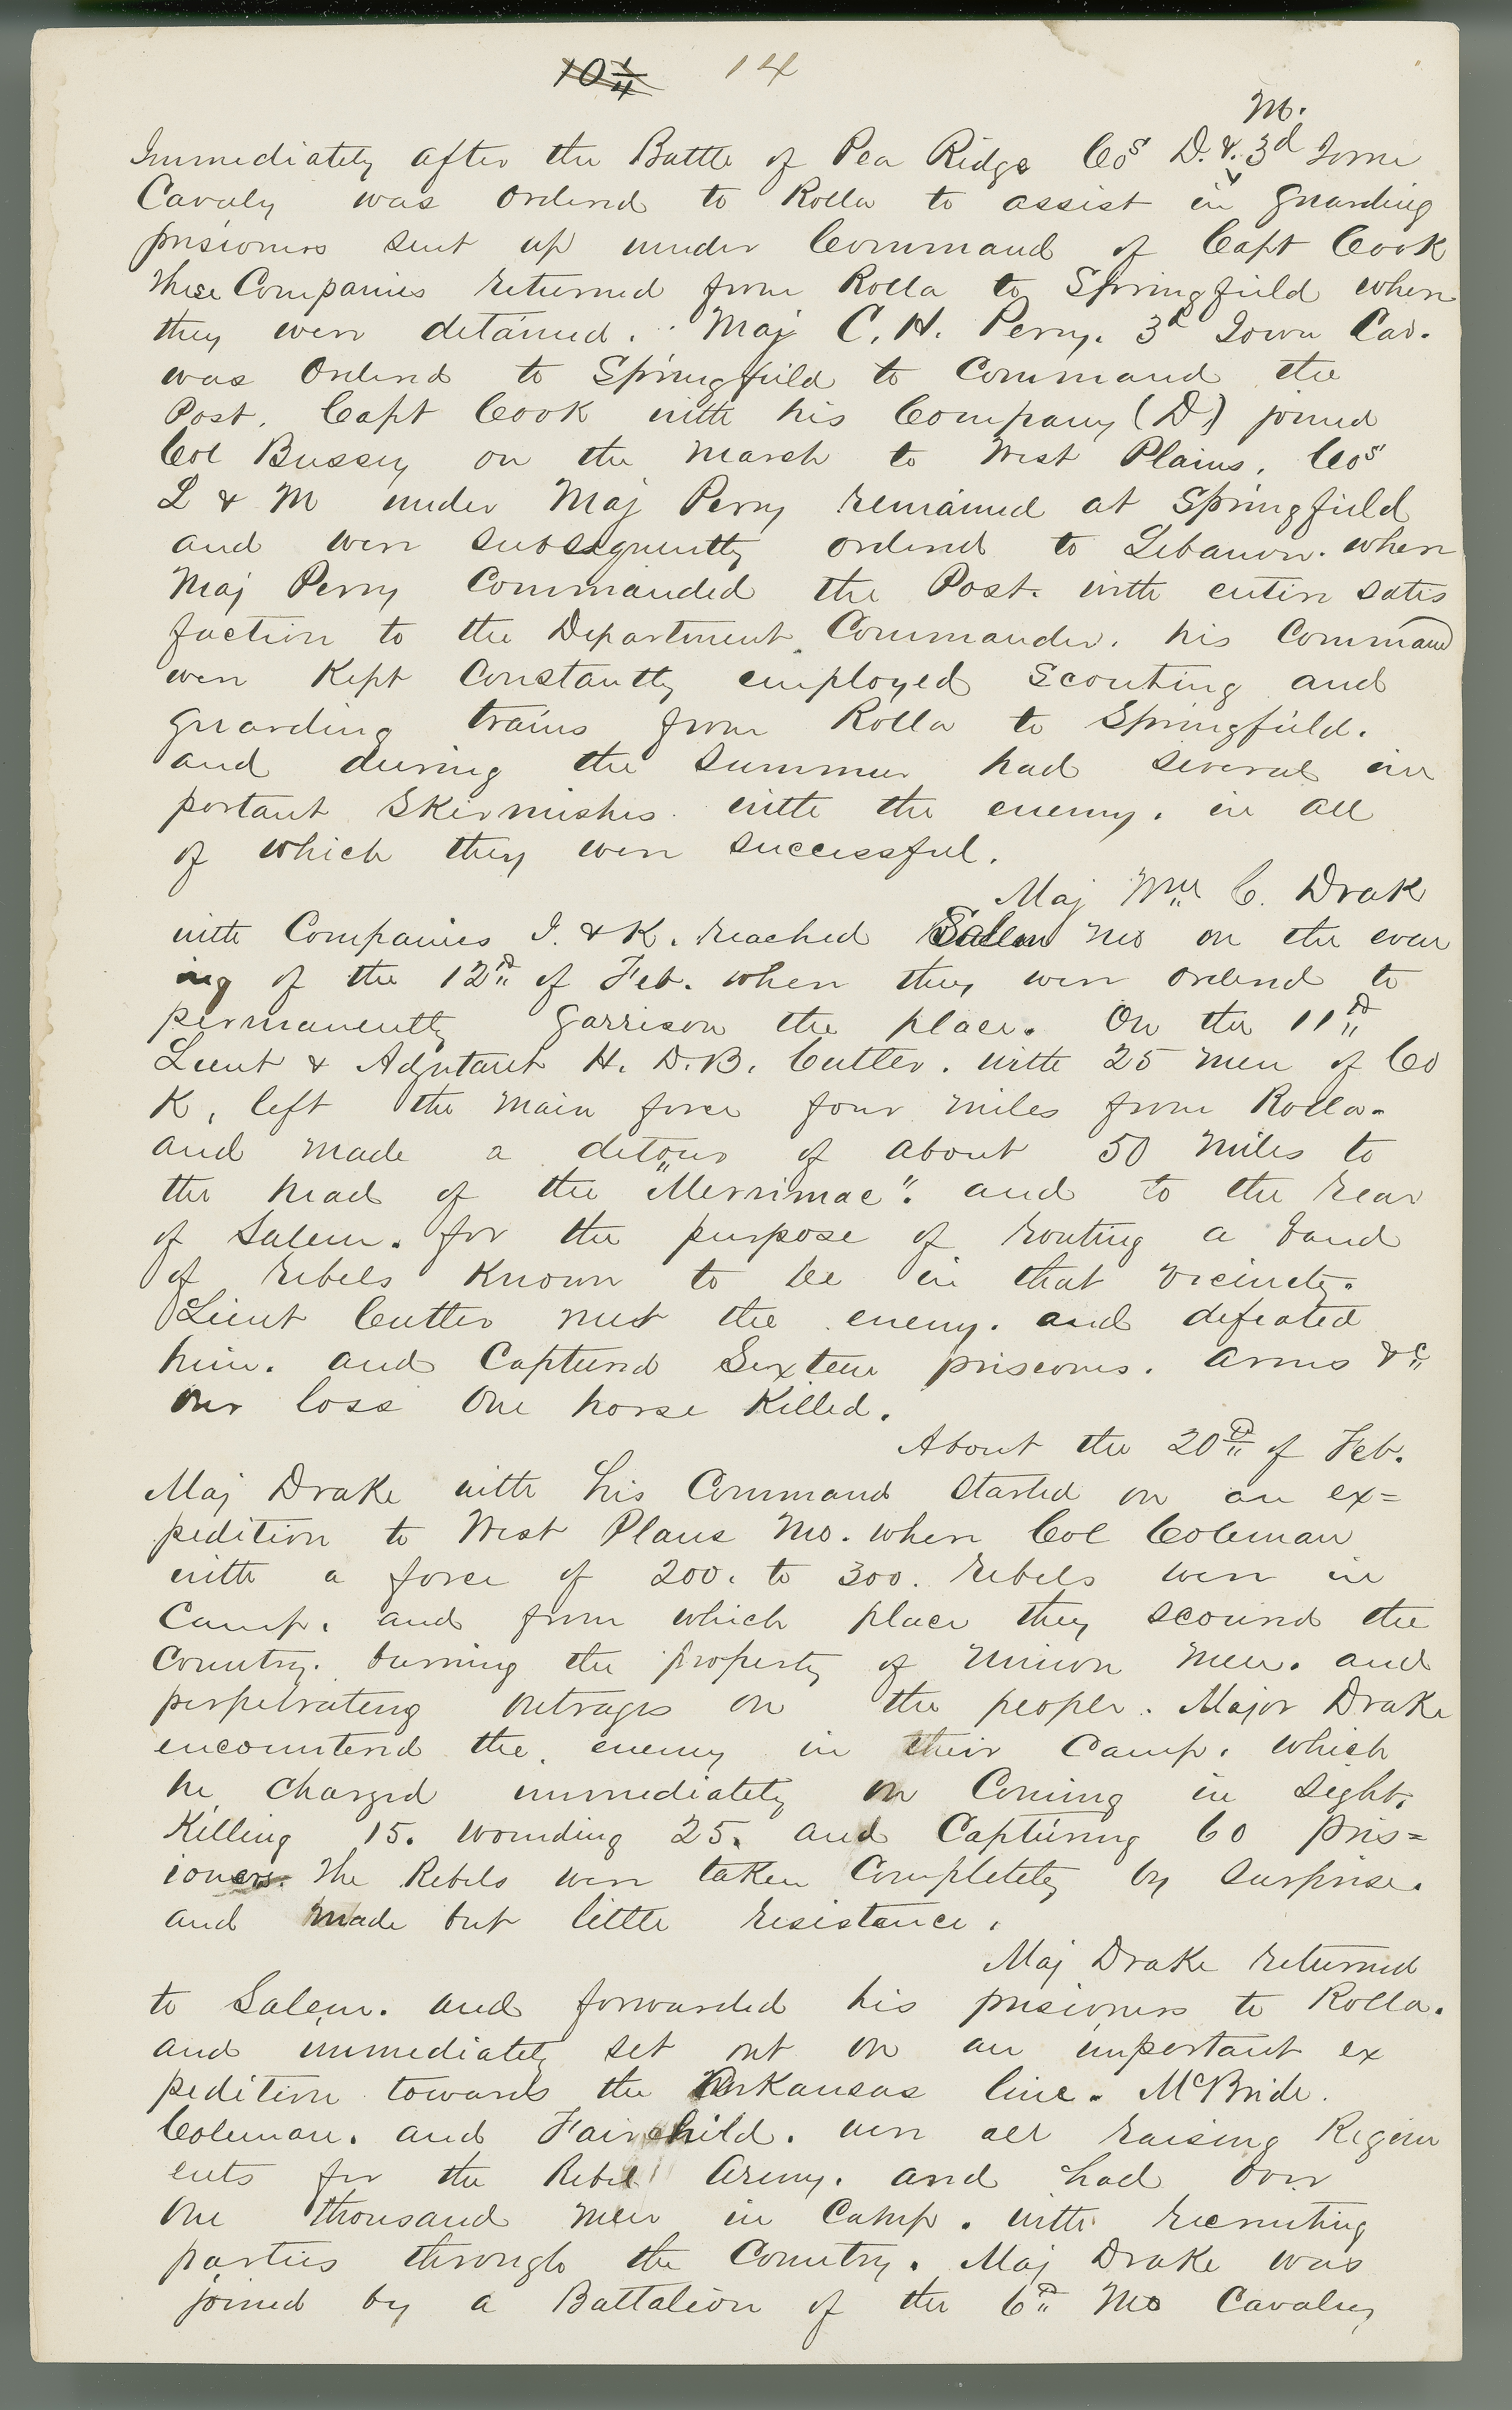 10¼ 14
M.
Immediately after the Battle of Pea Ridge Cos D. &. 3d Iowa
Cavaly was ordered to Rolla to assist in guarding
prisioners sent up under Command of Capt Cook
These Companies returned from Rolla to Springfield where
they were detained. Maj C. H. Perry. 3d Iowa Cav.
was Ordered to Springfield to Command the
Post. Capt Cook with his Company (D) joined
Col Bussey on the March to West Plains. Cos
L & M under Maj Perry remained at Springfield
and were subsequently ordered to Lebanon. where
Maj Perry Commanded the Post. with entire satis
faction to the Department Commander. his Command
were Kept Constantly employed Scouting and
guarding trains from Rolla to Springfield.
and during the Summer had several im
portant Skirmishes with the enemy. in all
of which they were successful.
Maj Wm C. Drak
with Companies I. & K. reached Salem Mo on the even
ing of the 12th of Feb. where they were ordered to
permanently garrison the place. On the 11th
Lieut & Adjutant H. D. B. Cutler. with 25 men of Co
K, left the main force four miles from Rolla.
and made a detour of about 50 miles to
the head of the "Merrimac". and to the rear
of Salem. for the purpose of routing a band
of rebels Known to be in that vicinity.
Lieut Cutler met the enemy. and defeated
him. and Captured Sixteen prisioners. arms &c
our loss One horse Killed.
About the 20th of Feb.
Maj Drake with his Command started on an ex=
pedition to West Plans Mo. where Col Coleman
with a force of 200. to 300. rebels were in
Camp. and from which place they scoured the
Country. burning the property of Union Men. and
perpetrating outrages on the people. Major Drake
encountered the enemy in their Camp. which
he charged immediately on Coming in sight.
Killing 15. wounding 25. and Capturing 60 pris=
ioners. The Rebels were taken Completely by surprise.
and made but little resistance.
Maj Drake returned
to Salem. and forwarded his prisioners to Rolla.
and immediately set out on an important ex
pedition towards the Arkansas line. McBride.
Coleman. and Fairchild. were all raising Regim
ents for the Rebel Army. and had over
One thousand men in Camp. with recruiting
parties through the Country. Maj Drake was
joined by a Battalion of the 6th Mo Cavalry